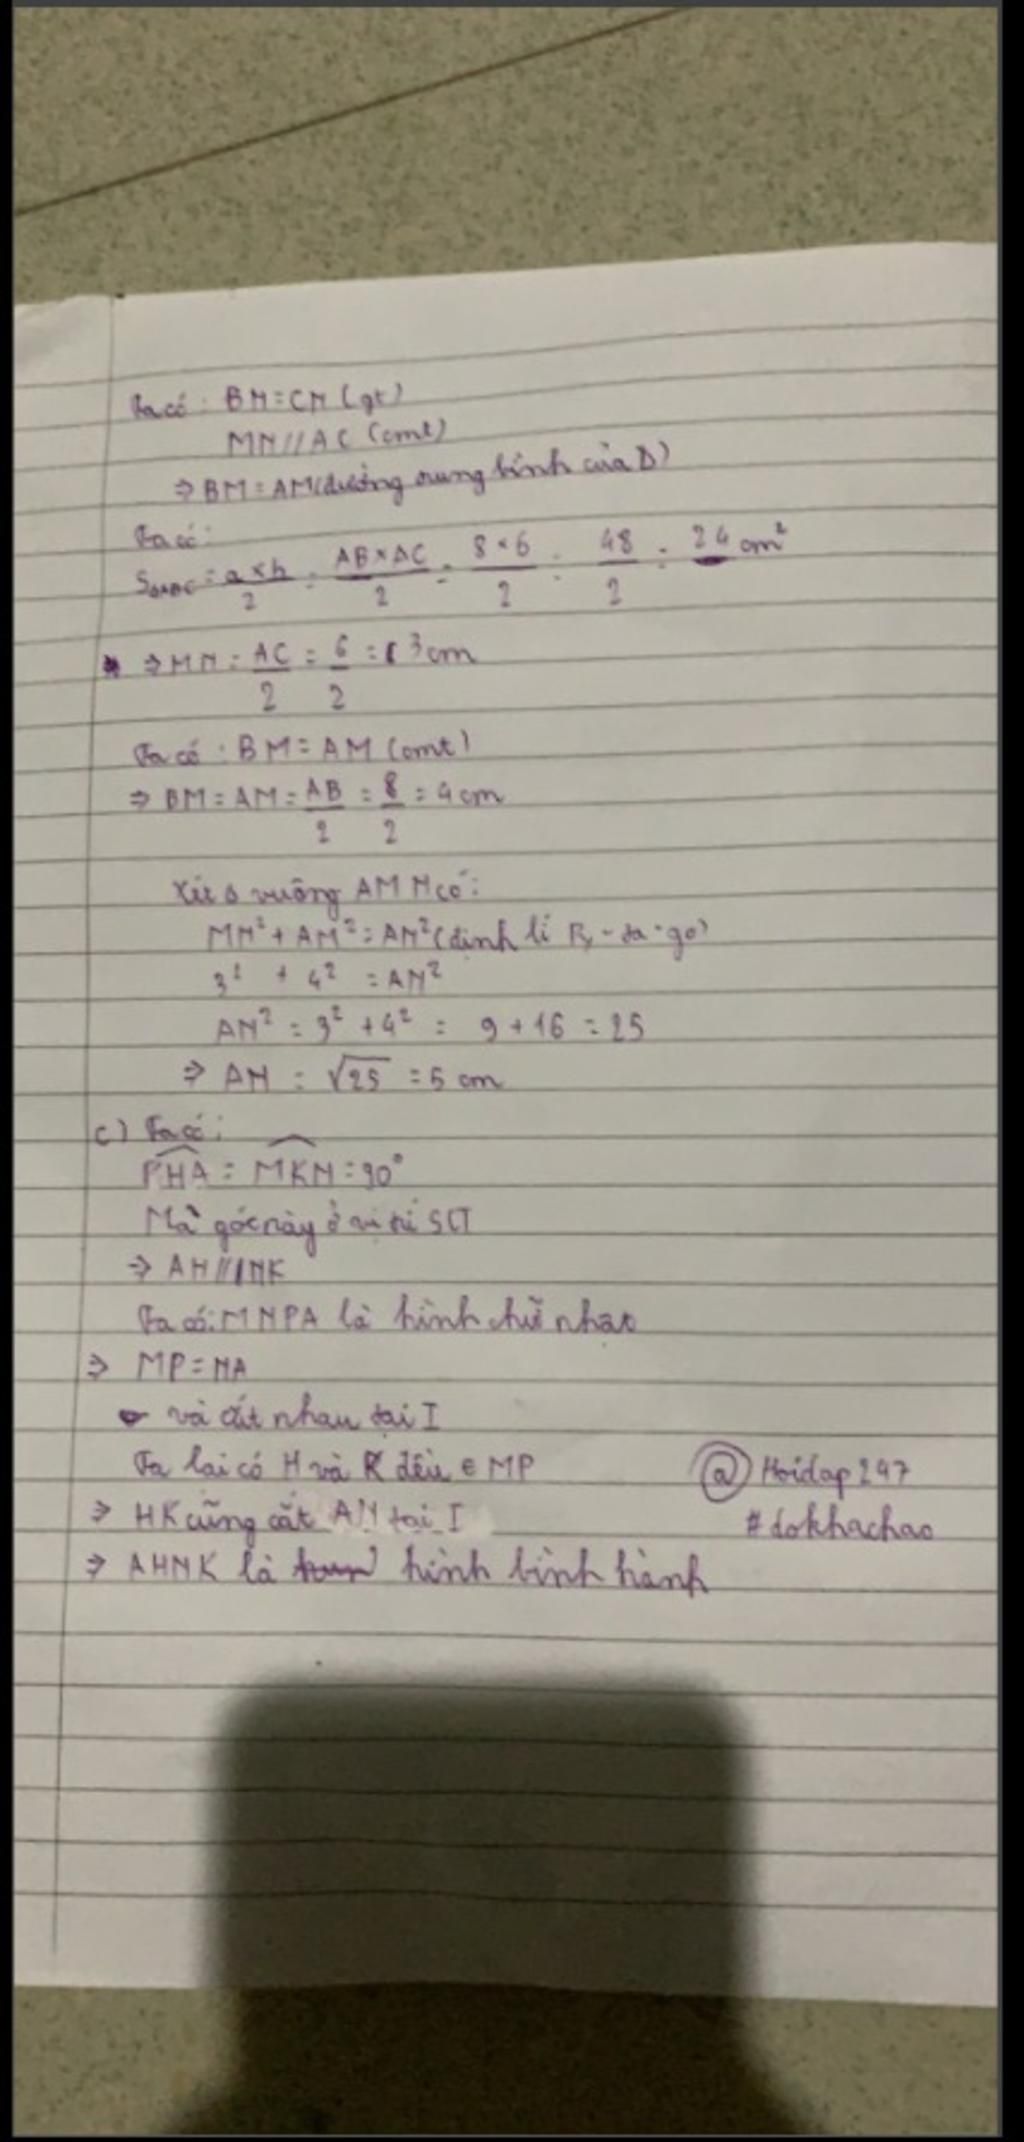 Ta có: BN=CN (gt)
MN//AC (cmt)
⇒ BM=AM(đường trung bình của Δ)
Ta có:
SΔABC = a×h/2 = AB×AC/2 = 8×6/2 = 48/2 = 24 cm²
⇒ MN = AC/2 = 6/2 = 3cm
Ta có: BM=AM (cmt)
⇒ BM=AM=AB/2=8/2=4cm
Xét Δ vuông AMN có:
MN²+AM²=AN²(định lí Py-ta-go)
3² + 4² = AN²
AN² = 3²+4² = 9+16 = 25
⇒ AN = √25 = 5 cm
c) Ta có:
PHA = MKN = 90°
Mà góc này ở vị trí SLT
⇒ AH//NK
Ta có: MNPA là hình chữ nhật
⇒ MP=NA
và cắt nhau tại I
Ta lại có H và K đều ∈ MP
@Hoidap247
⇒ HK cũng cắt AN tại I
#dokhachao
⇒ AHNK là hình bình hành